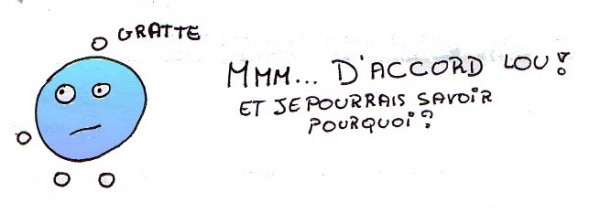 GRATTE
MMM... D'ACCORD LOU!
ET JE POURRAIS SAVOIR
POURQUOI?